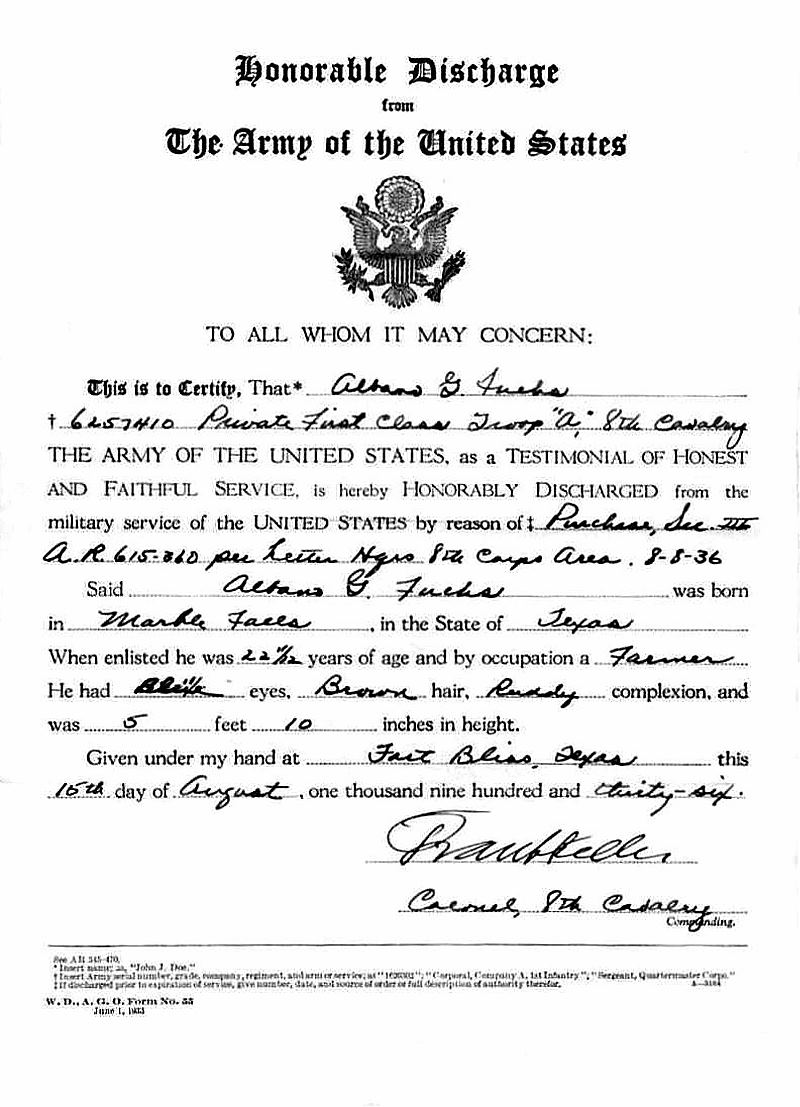 Honorable Discharge
from
The Army of the United States
TO ALL WHOM IT MAY CONCERN:
This is to Certify, That* Albano G. Fuchs
† 6257410 Private First Class Troop "A," 8th Cavalry
THE ARMY OF THE UNITED STATES, as a TESTIMONIAL OF HONEST
AND FAITHFUL SERVICE, is hereby HONORABLY DISCHARGED from the
military service of the UNITED STATES by reason of‡ Purchase, Sec. III
A.R. 615-360 per Letter Hqrs 8th Corps Area. 8-8-36
Said Albano G. Fuchs was born
in Marble Falls, in the State of Texas
When enlisted he was 22 years of age and by occupation a Farmer
He had eyes, Brown hair, Ruddy complexion, and
was 5 feet 10 inches in height.
Given under my hand at Fort Bliss, Texas this
15th day of August, one thousand nine hundred and thirty-six.
Colonel, 8th Cavalry
Commanding.
See AR 345-470.
* Insert name; as, "John J. Doe."
† Insert Army serial number, grade, company, regiment, and arm or service; as "1620302"; "Corporal, Company A, 1st Infantry"; "Sergeant, Quartermaster Corps."
‡ If discharged prior to expiration of service, give number, date, and source of order or full description of authority therefor.
W. D., A. G. O. Form No. 55
June 1, 1933